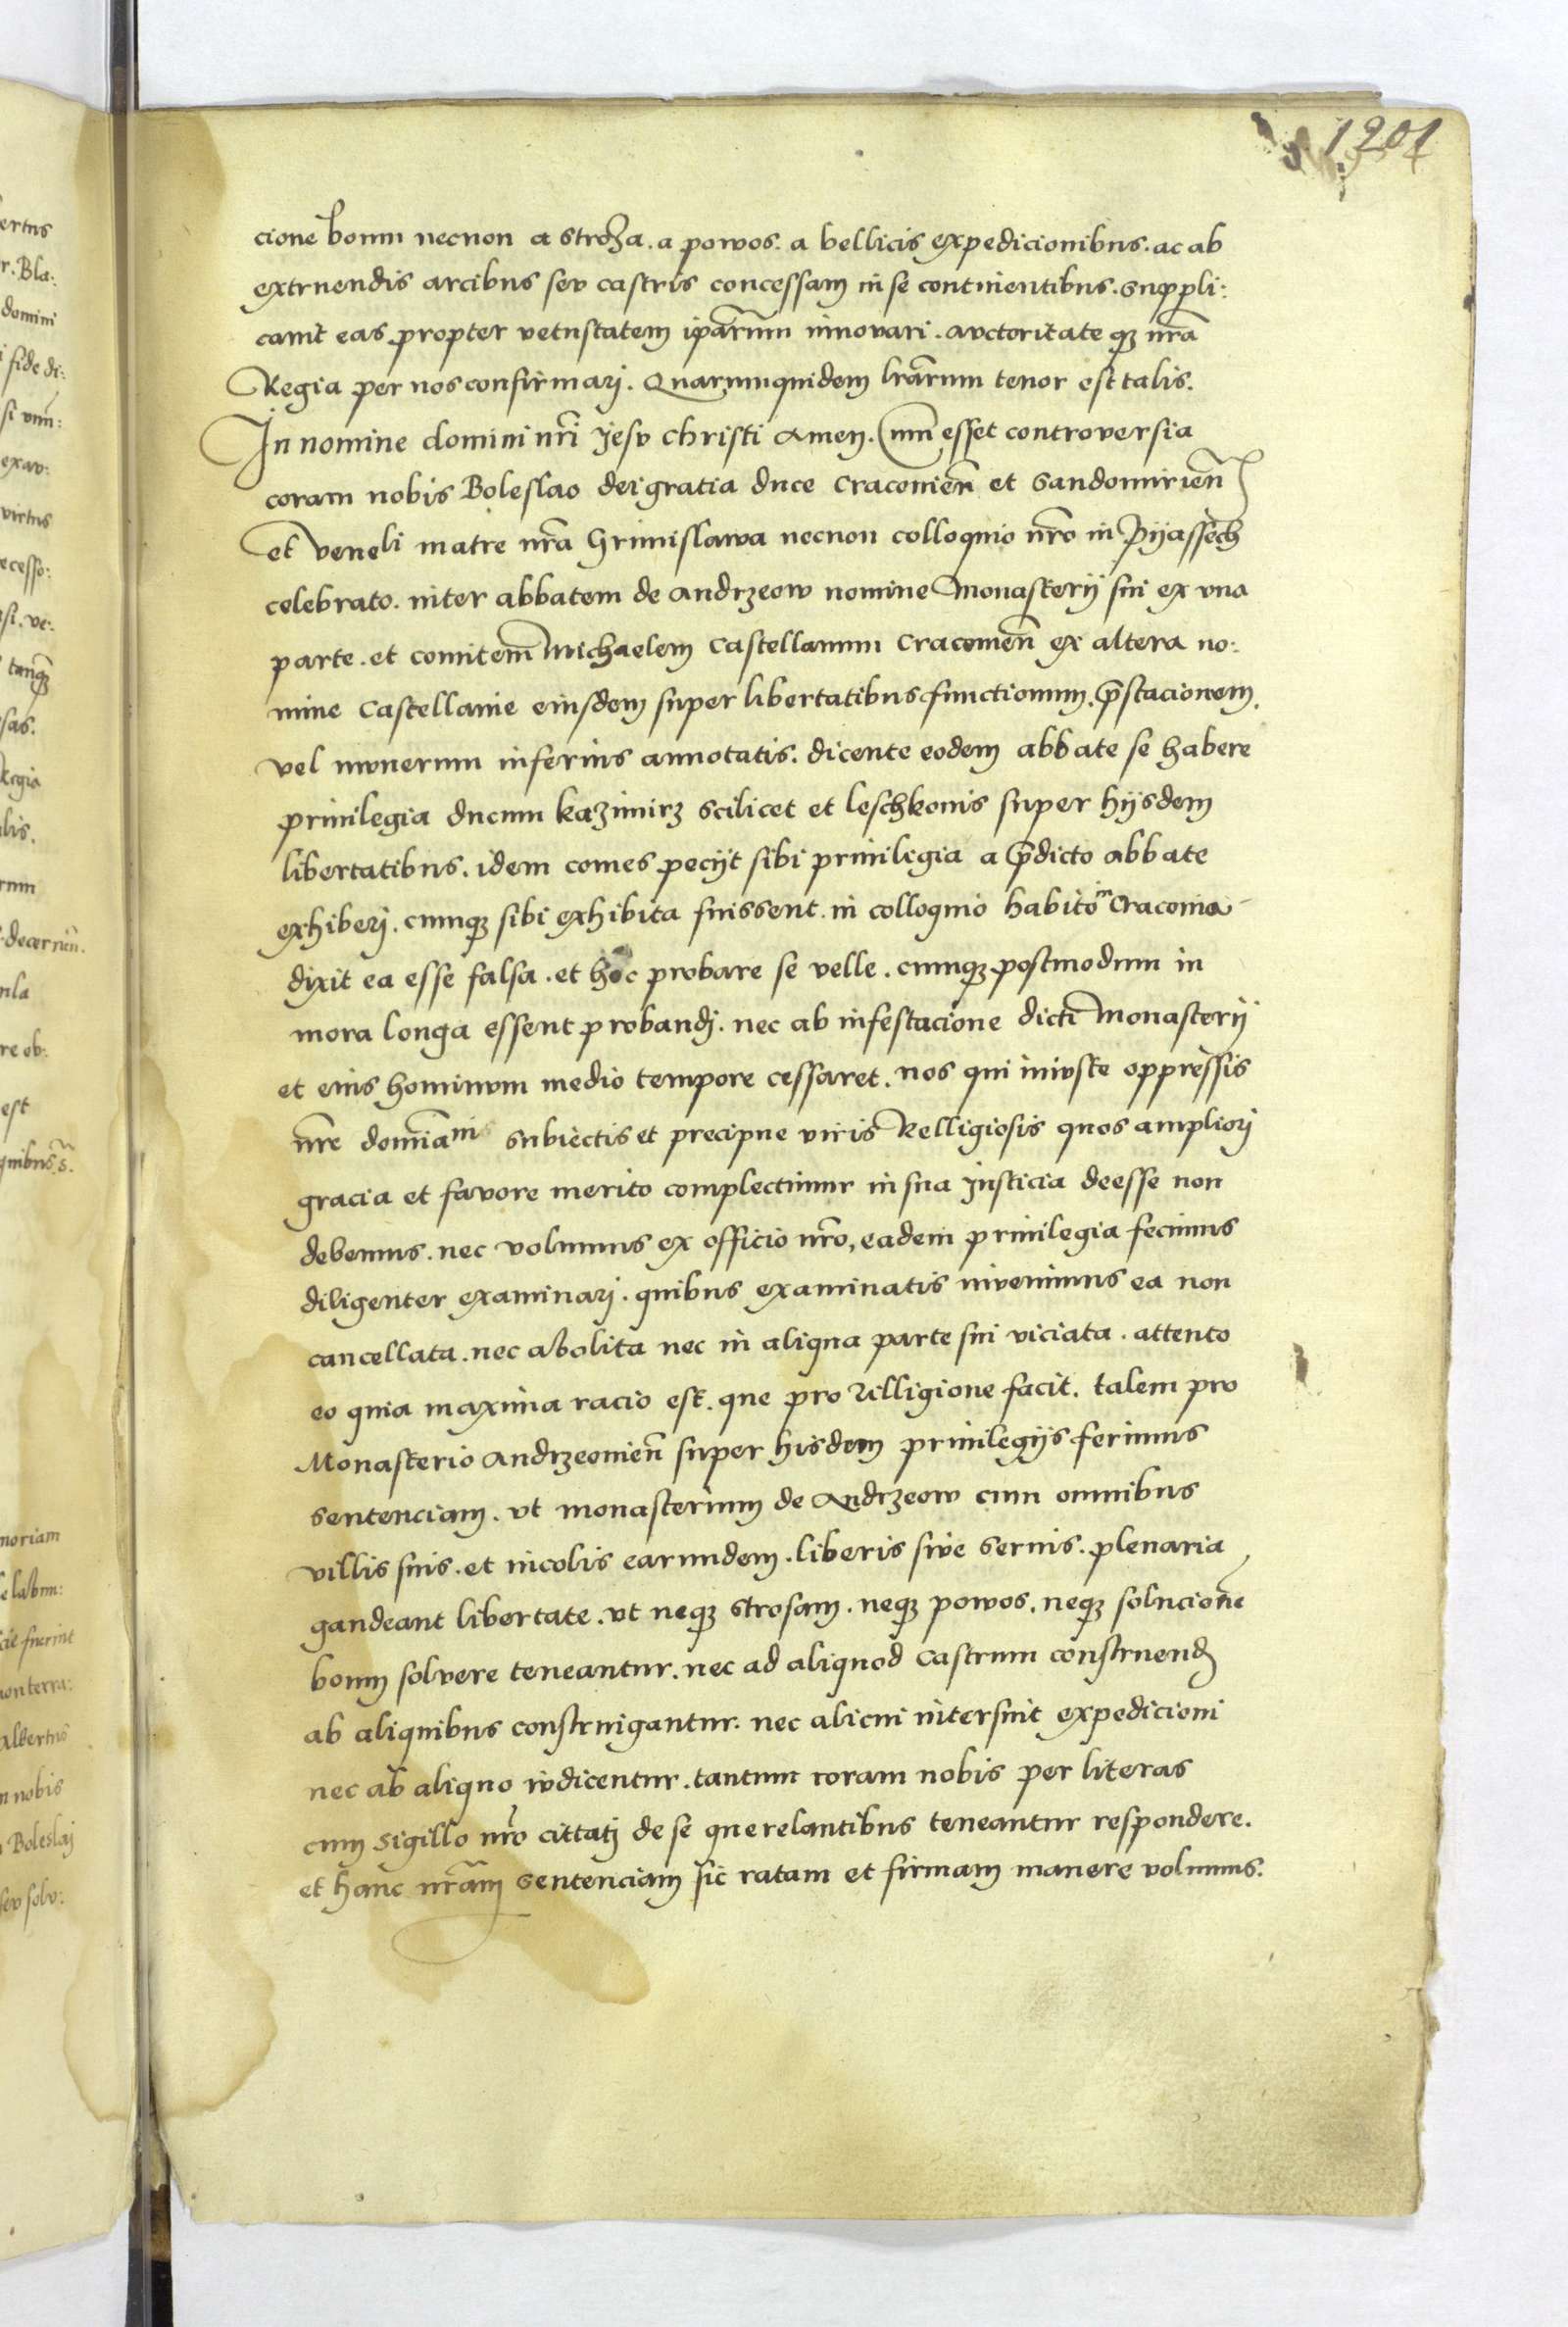 1201
cione boum necnon a stroza. a powos. a bellicis expedicionibus. ac ab
extruendis arcibus seu castris concessam in se continentibus. suppli:
cavit eas propter vetustatem ipãrum innovari. auctoritate q3 nr̃a
Regia per nos confirmarj. Quarumquidem lrãrum tenor est talis.
In nomine domini nr̃i Jesv Christi Amen. Cum esset controversia
coram nobis Boleslao dei gratia duce Cracovien̄ et Sandomirien̄
et veneli matre nr̃a Grimislawa necnon colloquio nr̃o in Pijassech
celebrato. inter abbatem de Andrzeow nomine Monasterij sui ex vna
parte. et comitem Michaelem Castellanum Cracovien̄ ex altera no:
mine Castellanie eiusdem super libertatibus functionum. p̄stacionem.
vel munerum inferius annotatis. dicente eodem abbate se habere
privilegia ducum kazimirz scilicet et leschkonis super hijsdem
libertatibus. idem comes pecijt sibi privilegia a p̄dicto abbate
exhiberj. cumq3 sibi exhibita fuissent. in colloquio habito in Cracovia
dixit ea esse falsa. et hoc probare se velle. cumq3 postmodum in
mora longa essent probandj. nec ab infestacione dicti Monasterij
et eius hominum medio tempore cessaret. nos qui iniuste oppressis
nr̃e domĩanis subiectis et precipue viris Relligiosis quos ampliorj
gracia et favore merito complectimur in sua Justicia deesse non
debemus. nec volumus ex officio nr̃o, eadem privilegia fecimus
diligenter examinarj. quibus examinatis invenimus ea non
cancellata. nec abolita nec in aliqua parte sui viciata. attento
eo quia maxima racio est. que pro Relligione facit. talem pro
Monasterio Andrzeovien̄ super hisdem privilegijs ferimus
sentenciam. vt monasterium de Andrzeow cum omnibus
villis suis. et incolis earundem. liberis sive servis. plenaria
gaudeant libertate. vt neq3 strosam. neq3 powos. neq3 solucione
boum solvere teneantur. nec ad aliquod castrum construend
ab aliquibus constringantur. nec alicui intersint expedicioni
nec ab aliquo iudicentur. tantum coram nobis per literas
cum sigillo nr̃o cittatj de se querelantibus teneantur respondere.
et hanc nr̃am sentenciam sic ratam et firmam manere volumus.